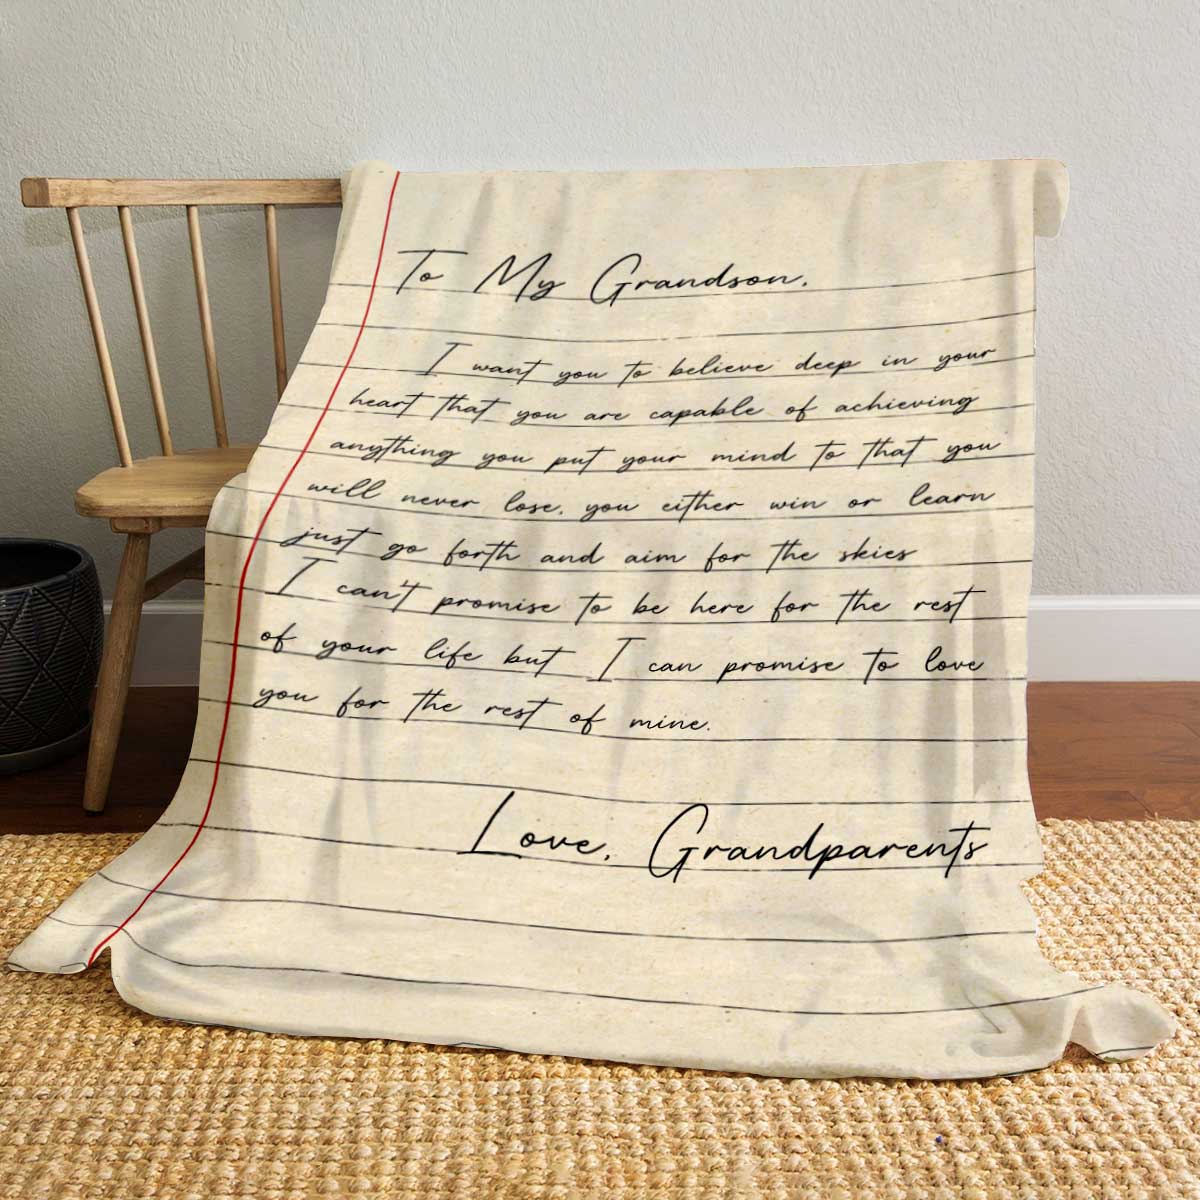 To My Grandson,
I want you to believe deep in your
heart that you are capable of achieving
anything you put your mind to that you
will never lose, you either win or learn
just go forth and aim for the skies
I can't promise to be here for the rest
of your life but I can promise to love
you for the rest of mine.
Love, Grandparents